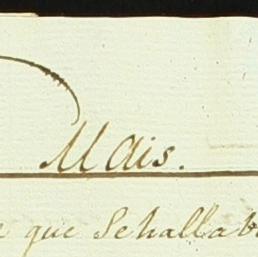 Mais.
que Sehallab